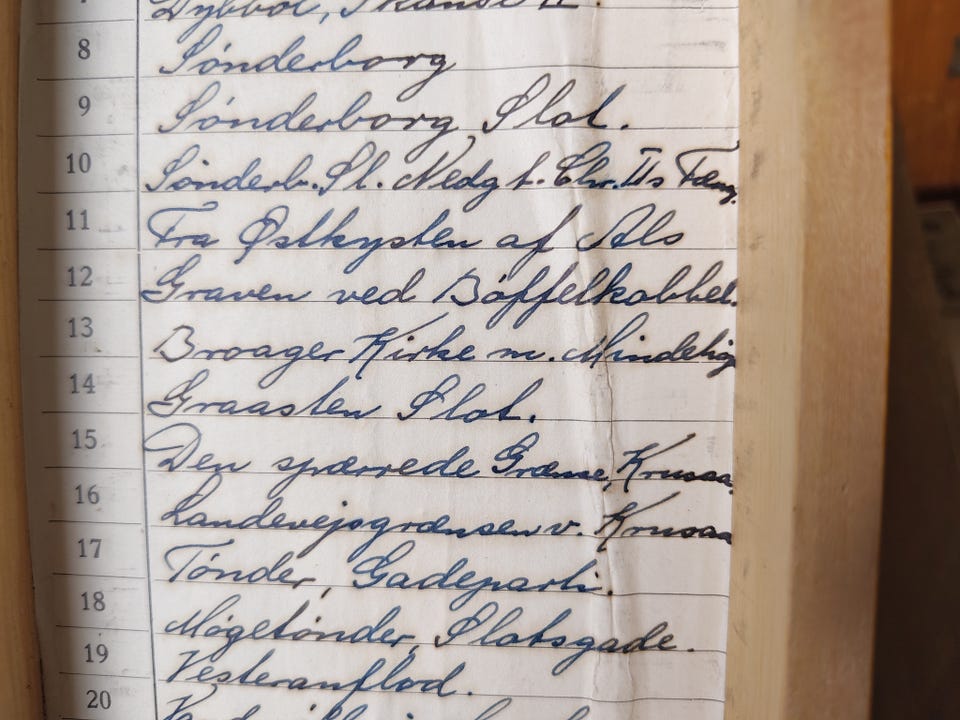 Dybbøl, Skanse II.
8 Sønderborg
9 Sønderborg Slot.
10 Sønderb. Sl. Nedg t. Chr. IIs Fæng.
11 Fra Østkysten af Als
12 Graven ved Bøffelkobbel.
13 Broager Kirke m. Mindehøj
14 Graasten Slot.
15 Den spærrede Grænse, Krusaa.
16 Landevejsgrænsen v. Krusaa
17 Tønder, Gadeparti.
18 Møgeltønder, Slotsgade.
19 Vesteranflod.
20